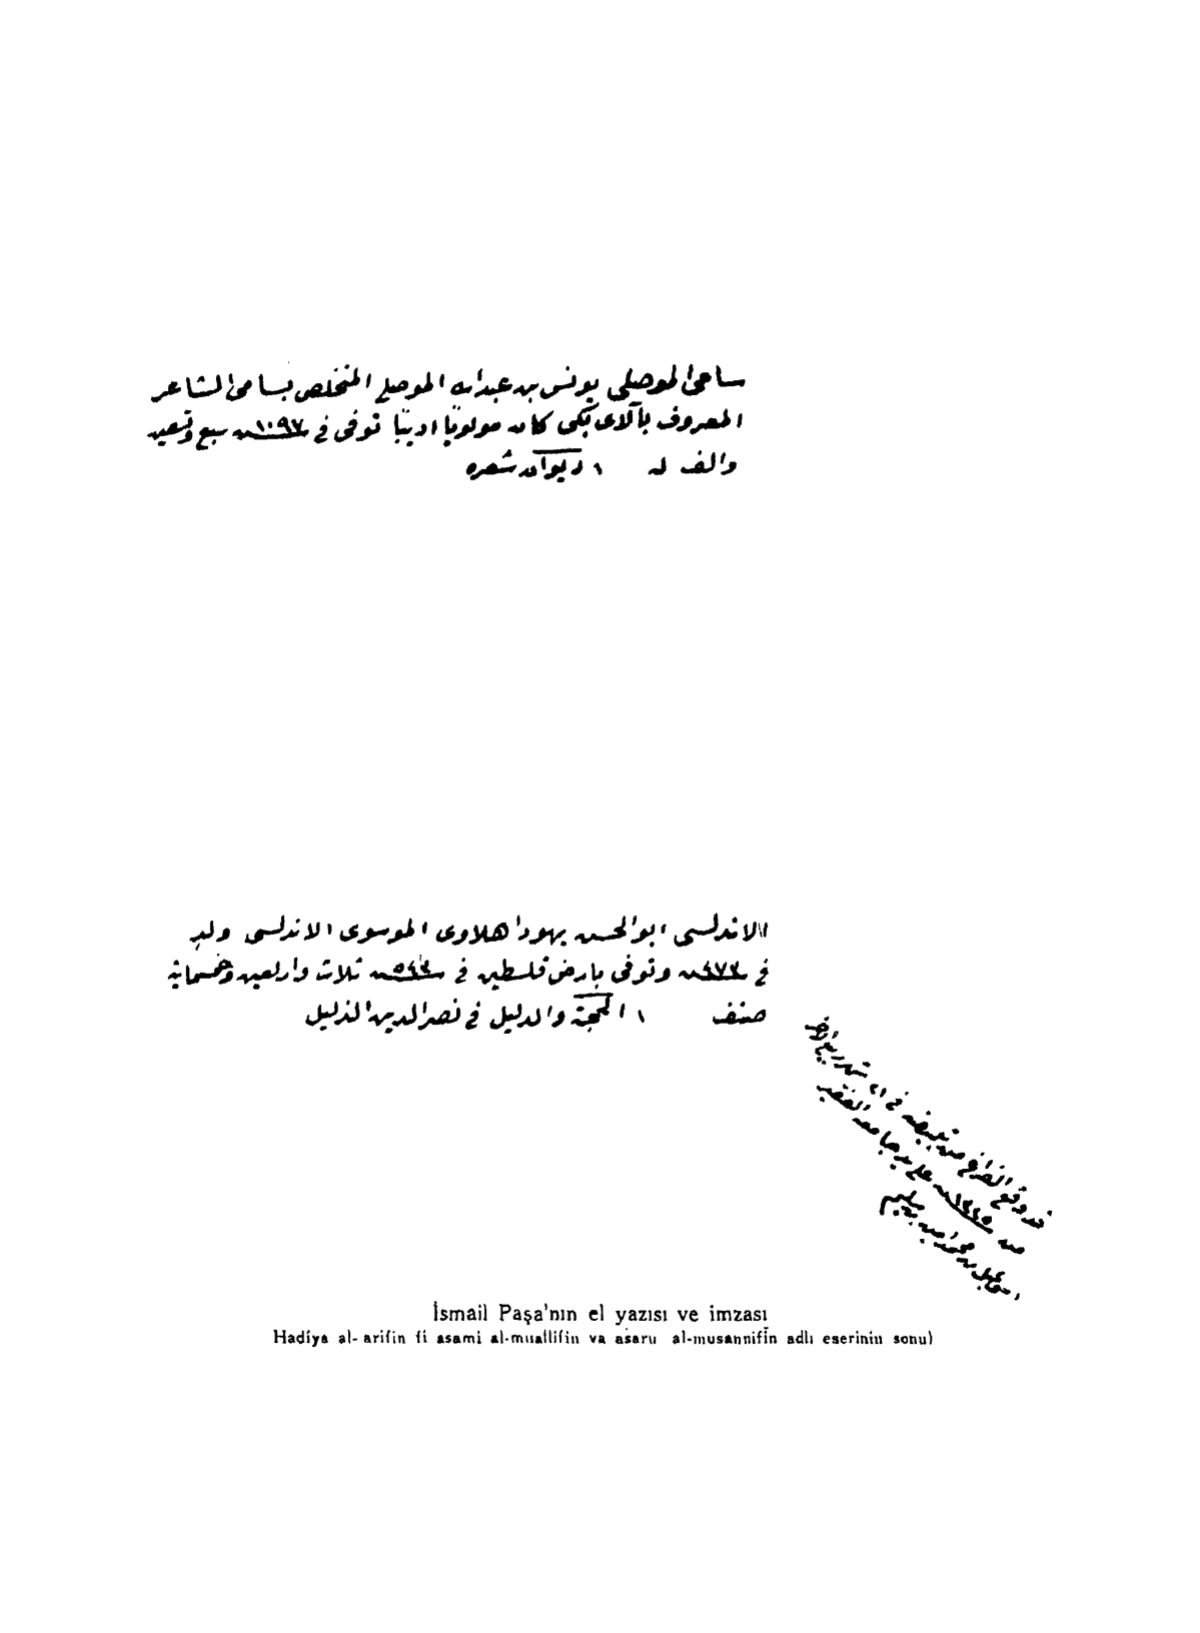 سامى الموصلى يونس بن عبد الله الموصلي المتخلص بسامى الشاعر
المعروف بآلاى بكى كان مولويا اديبا توفى فى سنة ١٠٩٧ سبع وتسعين
والف له ١ ديوان شعره
الاندلسى ابو الحسن يهودا هلاوى الموسوى الاندلسى ولد
فى سنة ٤٧٣ وتوفى بارض فلسطين فى سنة ٥٤٣ ثلاث واربعين وخمسماية
صنف ١ الحجة والدليل فى نصر الدين الذليل
قد وقع الفراغ من تبييضه فى ٢١ شهر ربيع الاخر
من سنة على يد جامعه الفقير
اسماعيل بن محمد امين بن سليم
İsmail Paşa'nın el yazısı ve imzası
Hadiya al- arifin fi asami al-muallifin va asaru al-musannifin adlı eserinin sonu)